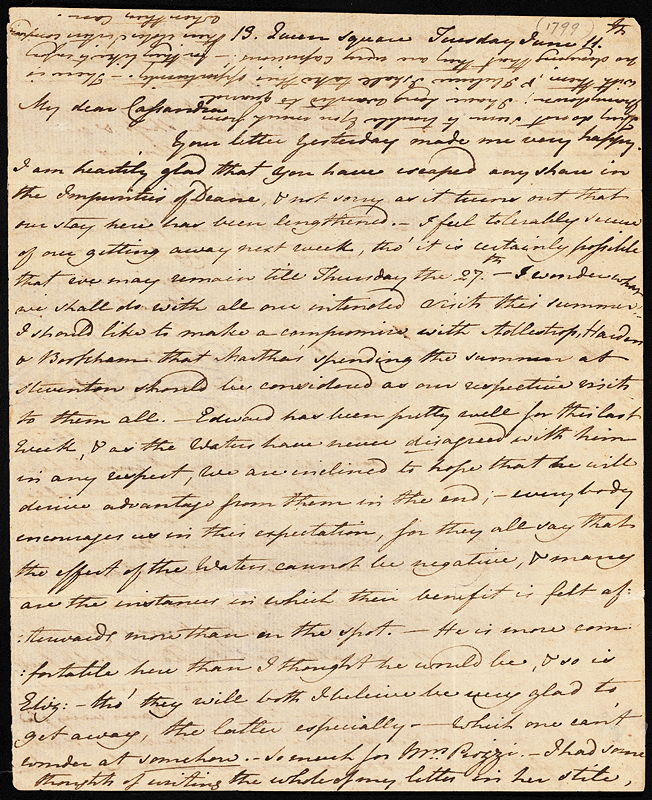 (1799)
13. Queen Square Tuesday June 11th
My dear Cassandra
Your letter yesterday made me very happy.
I am heartily glad that You have escaped any share in
the Impurities of Deane, & not sorry as it turns out that
our stay here has been lengthened. — I feel tolerably secure
of our getting away next week, tho' it is certainly possible
that we may remain till Thursday the 27th — I wonder what
we shall do with all our intended visits this summer? —
I should like to make a compromise with Adlestrop, Harden
& Bookham that Martha's spending the summer at
Steventon should be considered as our respective visits
to them all. — Edward has been pretty well for this last
Week, & as the Waters have never disagreed with him
in any respect, we are inclined to hope that he will
derive advantage from them in the end; — everybody
encourages us in this expectation, for they all say that
the effect of the Waters cannot be negative, & many
are the instances in which their benefit is felt af:
:terwards more than on the spot. — He is more com:
:fortable here than I thought he would be, & so is
Eliz: — tho' they will both I believe be very glad to
get away, the latter especially — Which one can't
wonder at somehow. — So much for Mrs. Piozzi. — I had some
thoughts of writing the whole of my letter in her stile,